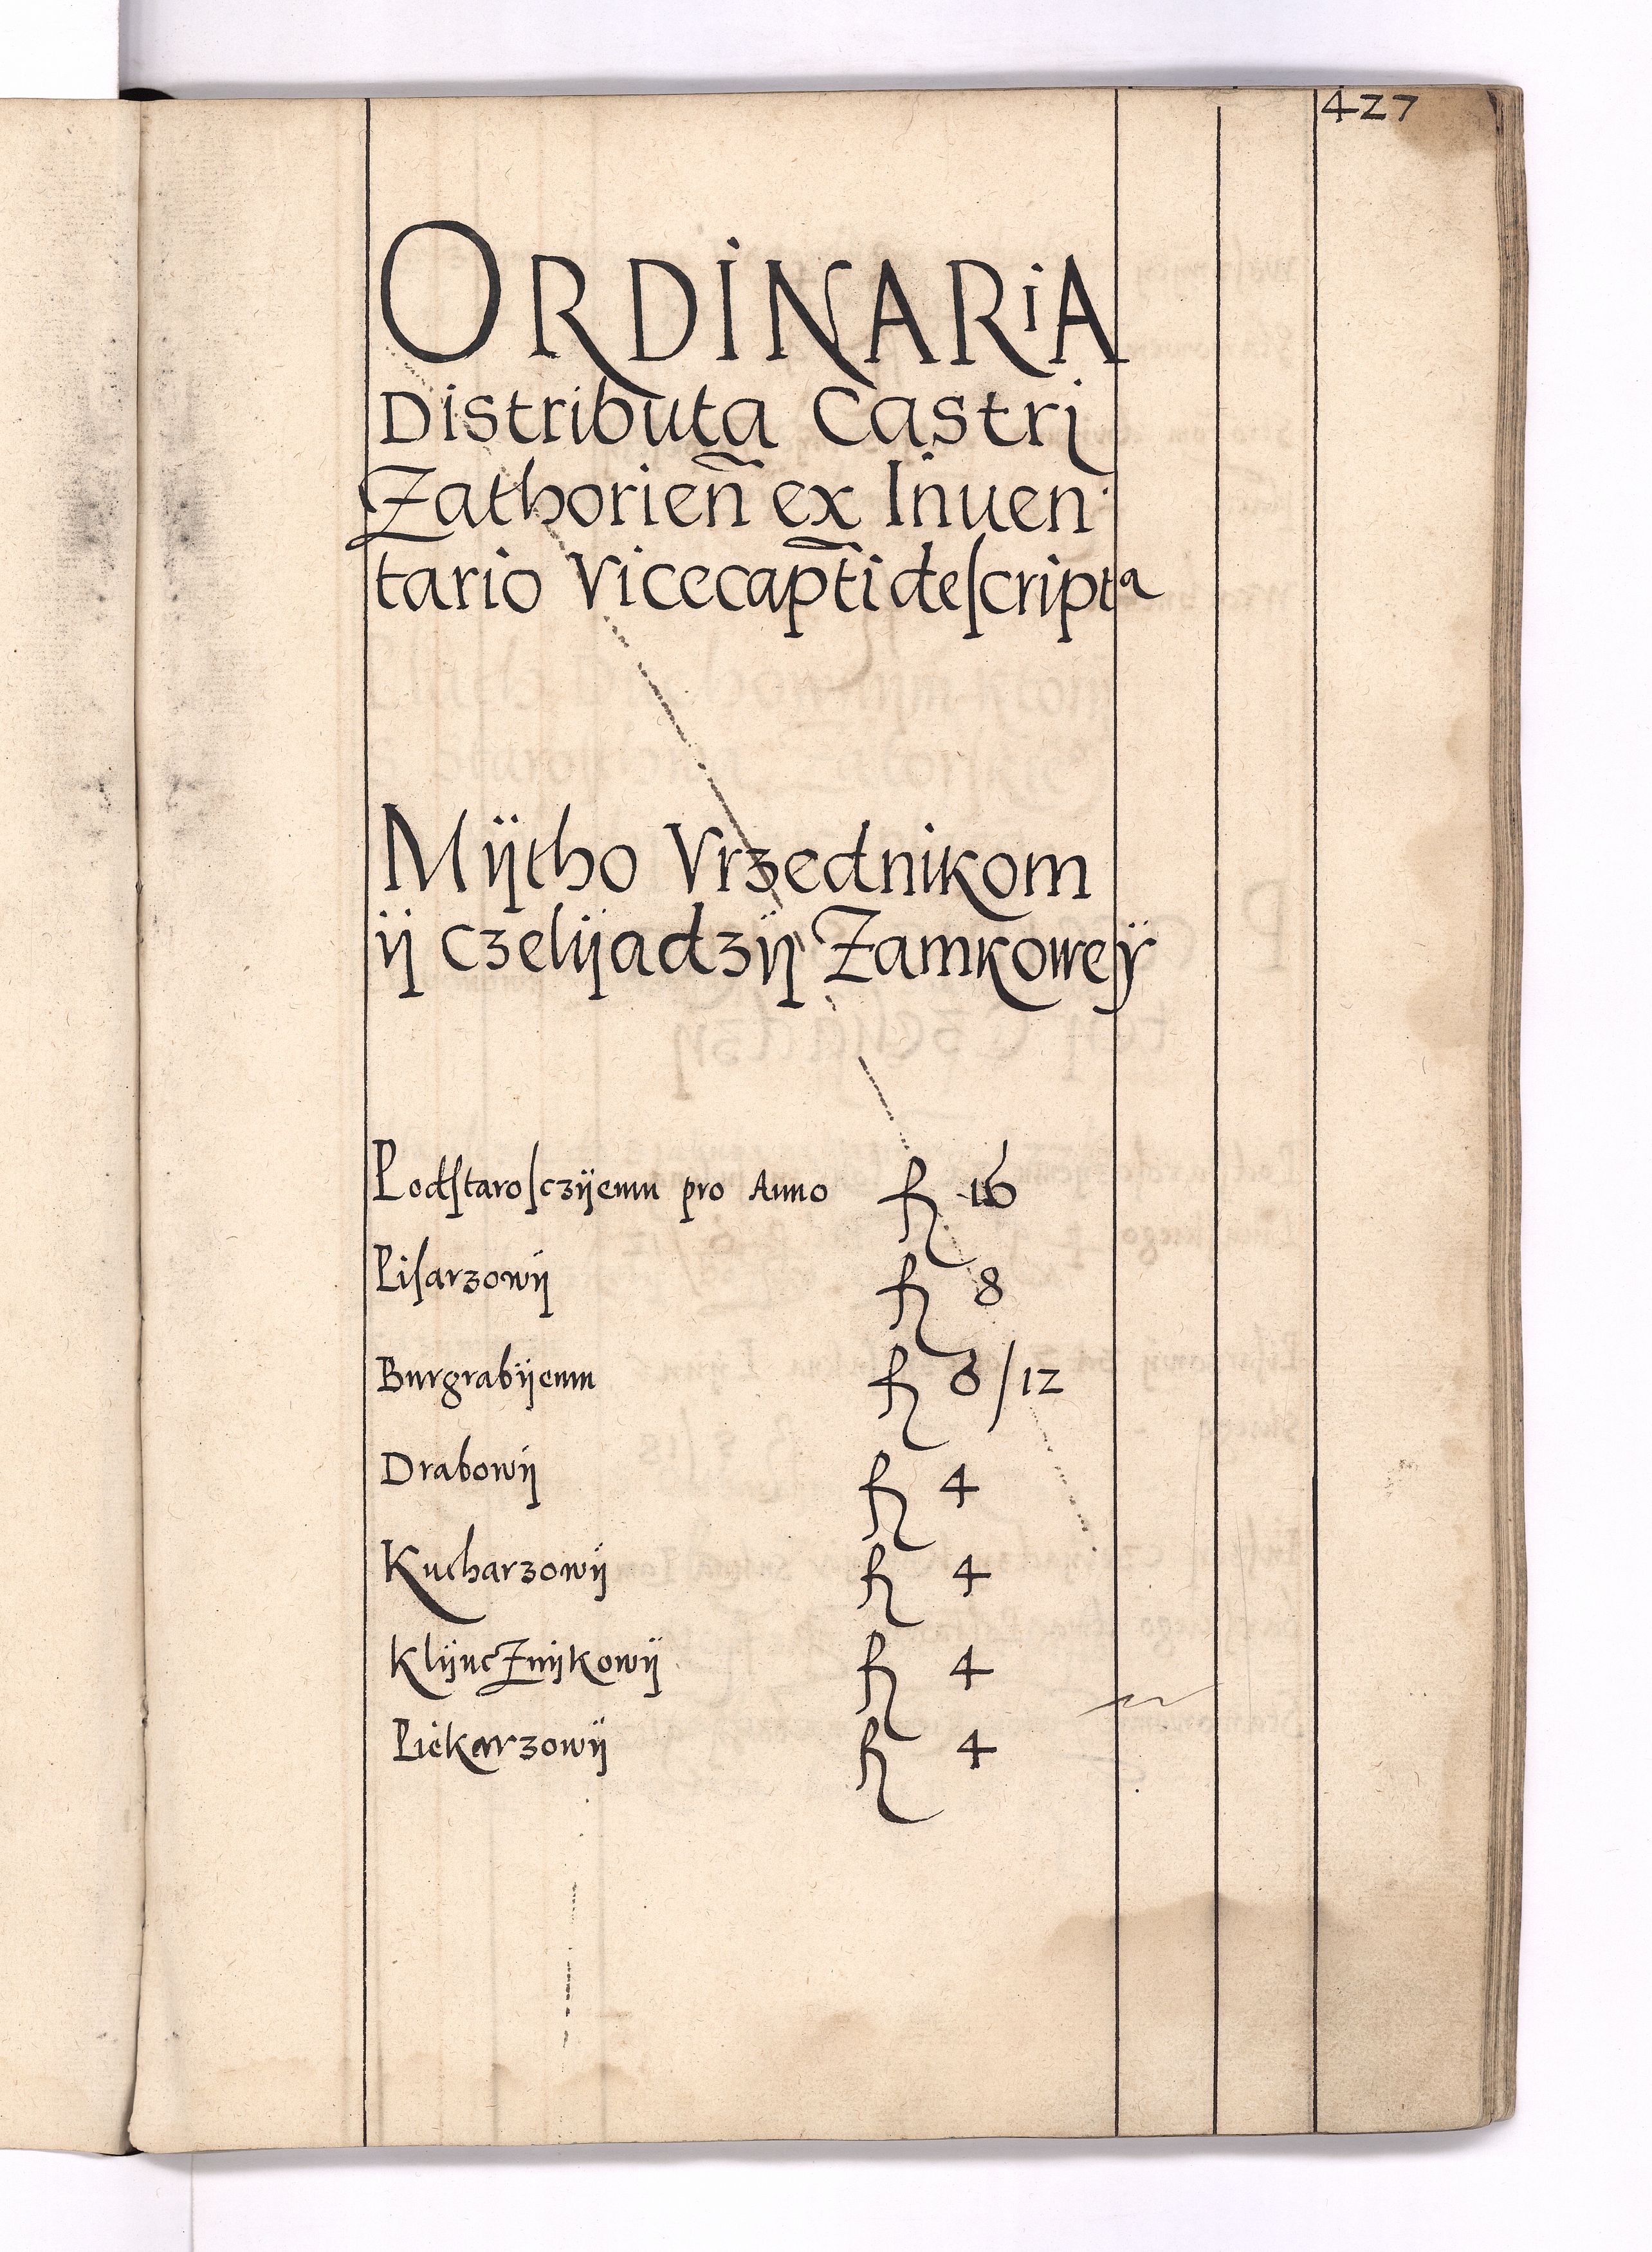 427
ORDINARiA
Distributa Castrj
Zathorien̄ ex Inuen
tario Vicecap̄ti deſcripta
Mÿtho Vrzednikom
ÿ czelÿadzÿ Zamkoweÿ
Podſtaroſczÿemu pro Anno fl 16
Piſarzowÿ fl 8
Burgrabÿemu fl 8/12
Drabowÿ fl 4
Kucharzowÿ fl 4
KlÿucZnÿkowÿ fl 4
Piekarzowÿ fl 4